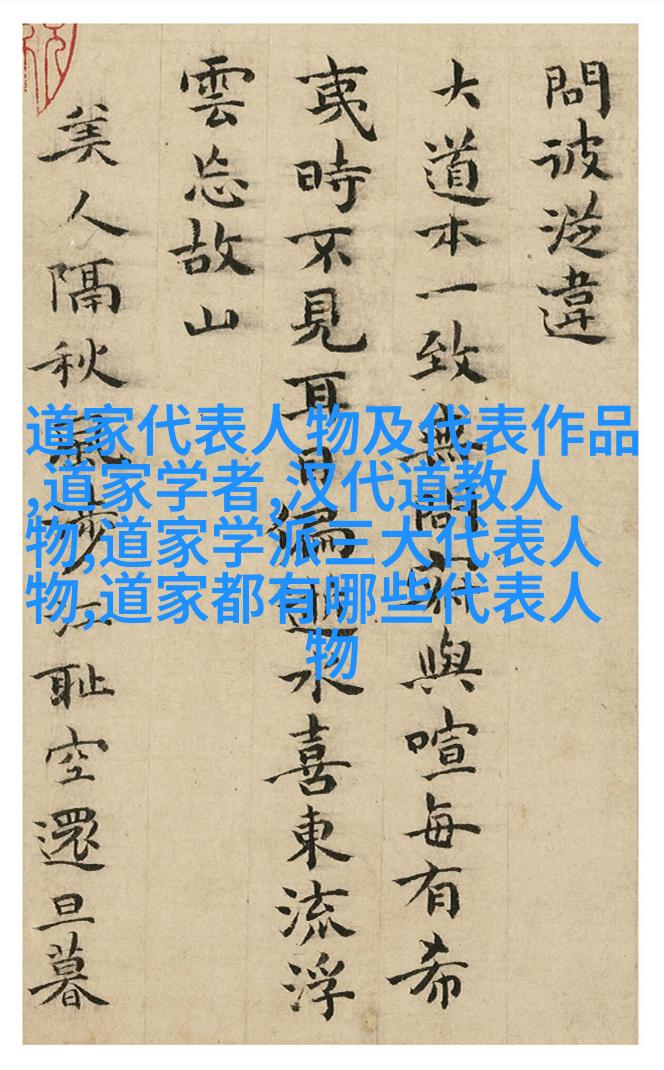 問彼從違
大道本一致無與喧每有希
夷時不見耳偏水喜東流浮
雲忘故山
美人隔秋風涉江耻空還旦暮
道家代表人物及代表作品
,道家学者,汉代道教人
物,道家学派三大代表人
物,道家都有哪些代表人
物